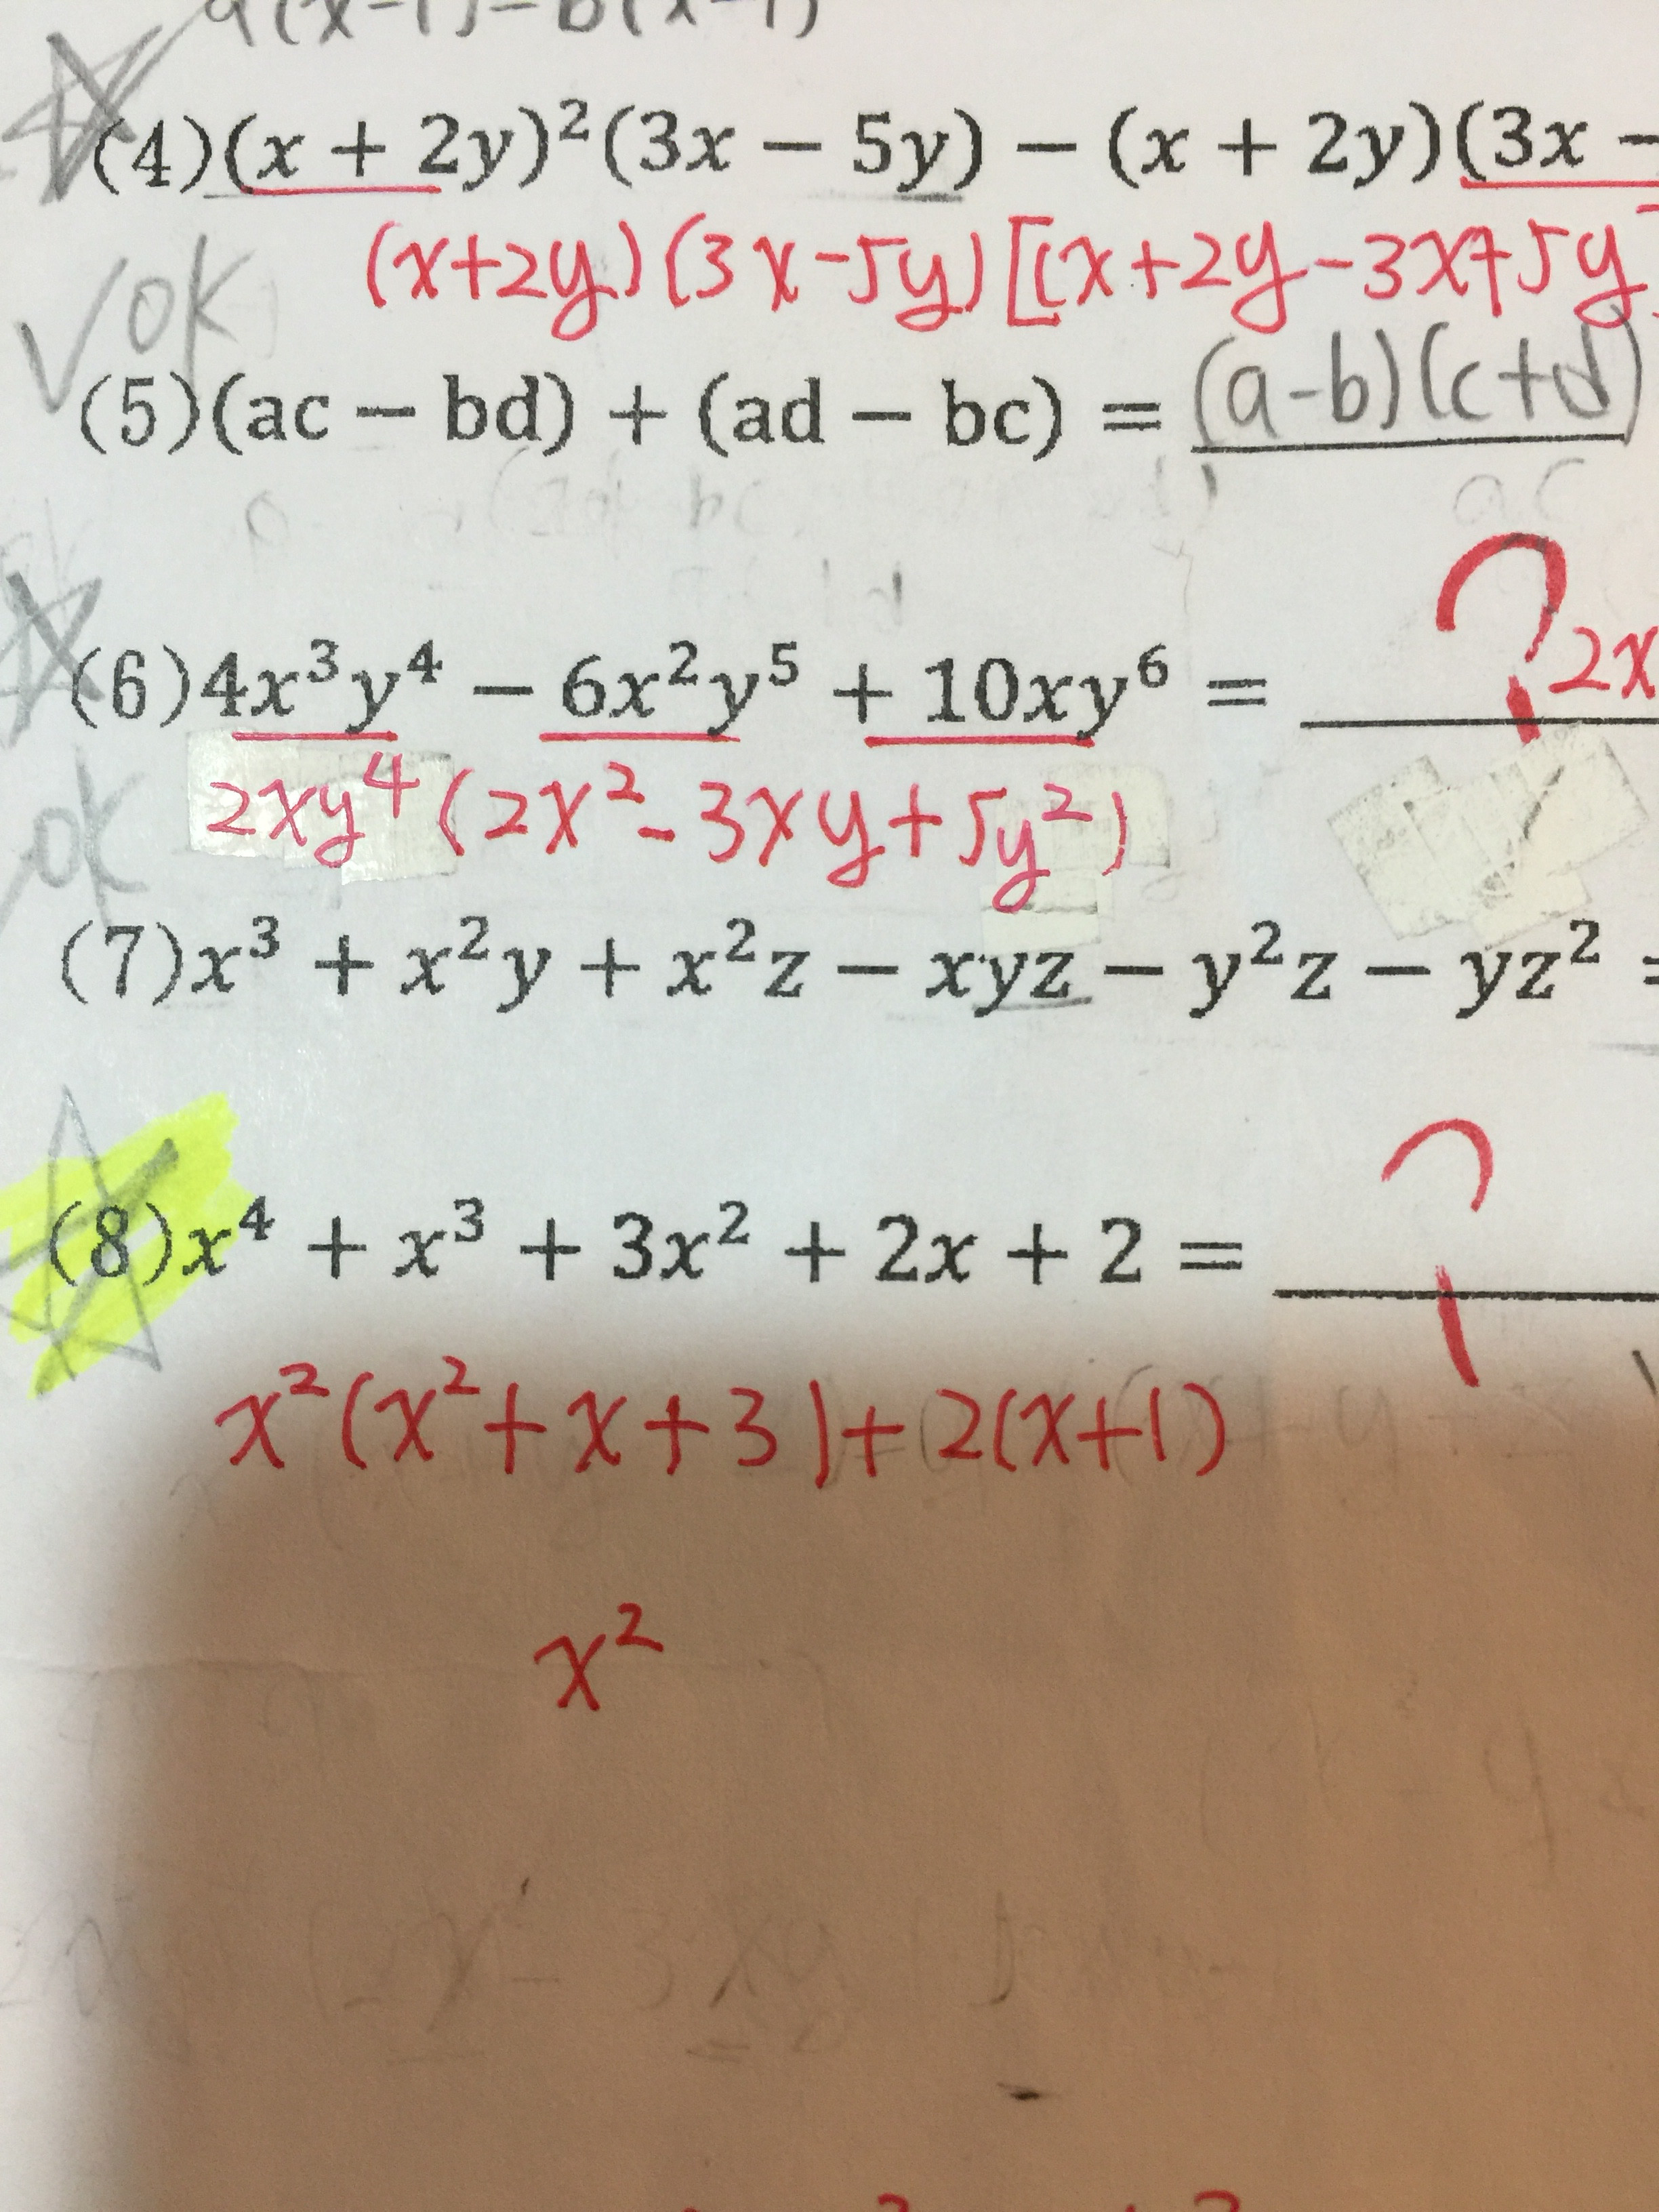 a(x-1)-b(x-1)
(4)(x + 2y)²(3x − 5y) − (x + 2y)(3x −
(x+2y)(3x-5y)[(x+2y-3x+5y]
√ok
(5)(ac − bd) + (ad − bc) = (a-b)(c+d)
?
(6)4x³y⁴ − 6x²y⁵ + 10xy⁶ = 2x
2xy⁴(2x²-3xy+5y²)
ok
(7)x³ + x²y + x²z − xyz − y²z − yz² =
?
(8)x⁴ + x³ + 3x² + 2x + 2 =
x²(x²+x+3)+2(x+1)
x²